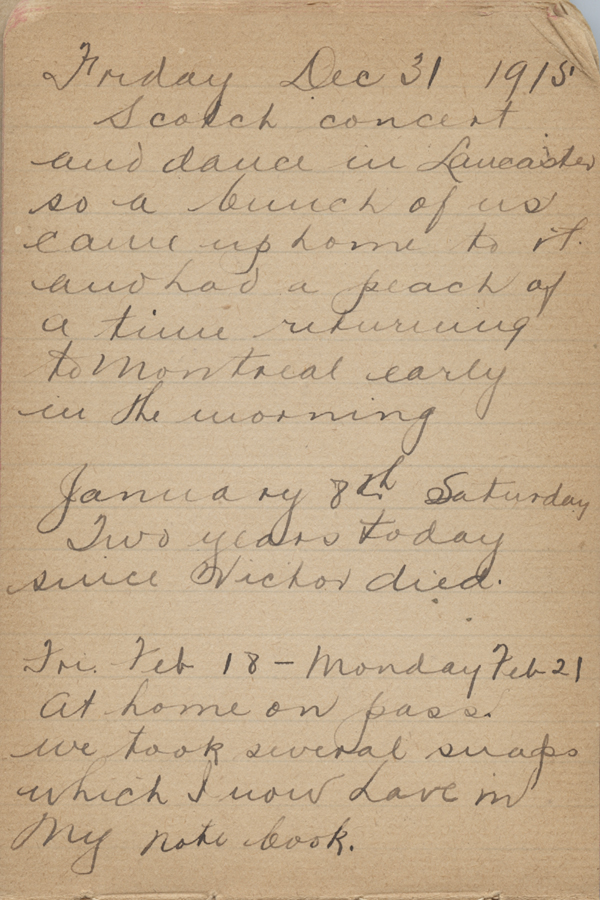 Friday Dec 31 1915
Scotch concert
and dance in Lancaster
so a bunch of us
came up home to it.
and had a peach of
a time returning
to Montreal early
in the morning
January 8th Saturday
Two years today
since Victor died.
Fri. Feb 18 - Monday Feb 21
At home on pass.
we took several snaps
which I now have in
My note book.